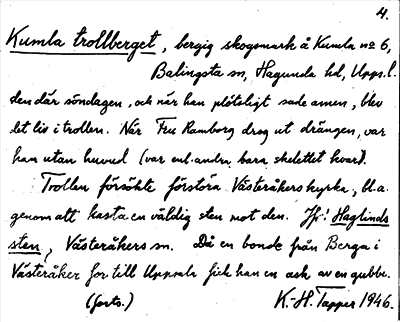 4.
Kumla trollberget, bergig skogsmark å Kumla no 6,
Balingsta sn, Hagunda hd, Upps. l.
den där söndagen, och när han plötsligt sade amen, blev
det liv i trollen. När Fru Ramborg drog ut drängen, var
han utan huvud (var enl. andra, bara skelettet kvar).
Trollen försökte förstöra Västeråkers kyrka, bl.a.
genom att kasta en väldig sten mot den. Jfr! Haglinds
sten, Västeråkers sn. Då en bonde från Berga i
Västeråker for till Uppsala fick han en ask av en gubbe.
(forts.) K.-H. Tapper 1946.